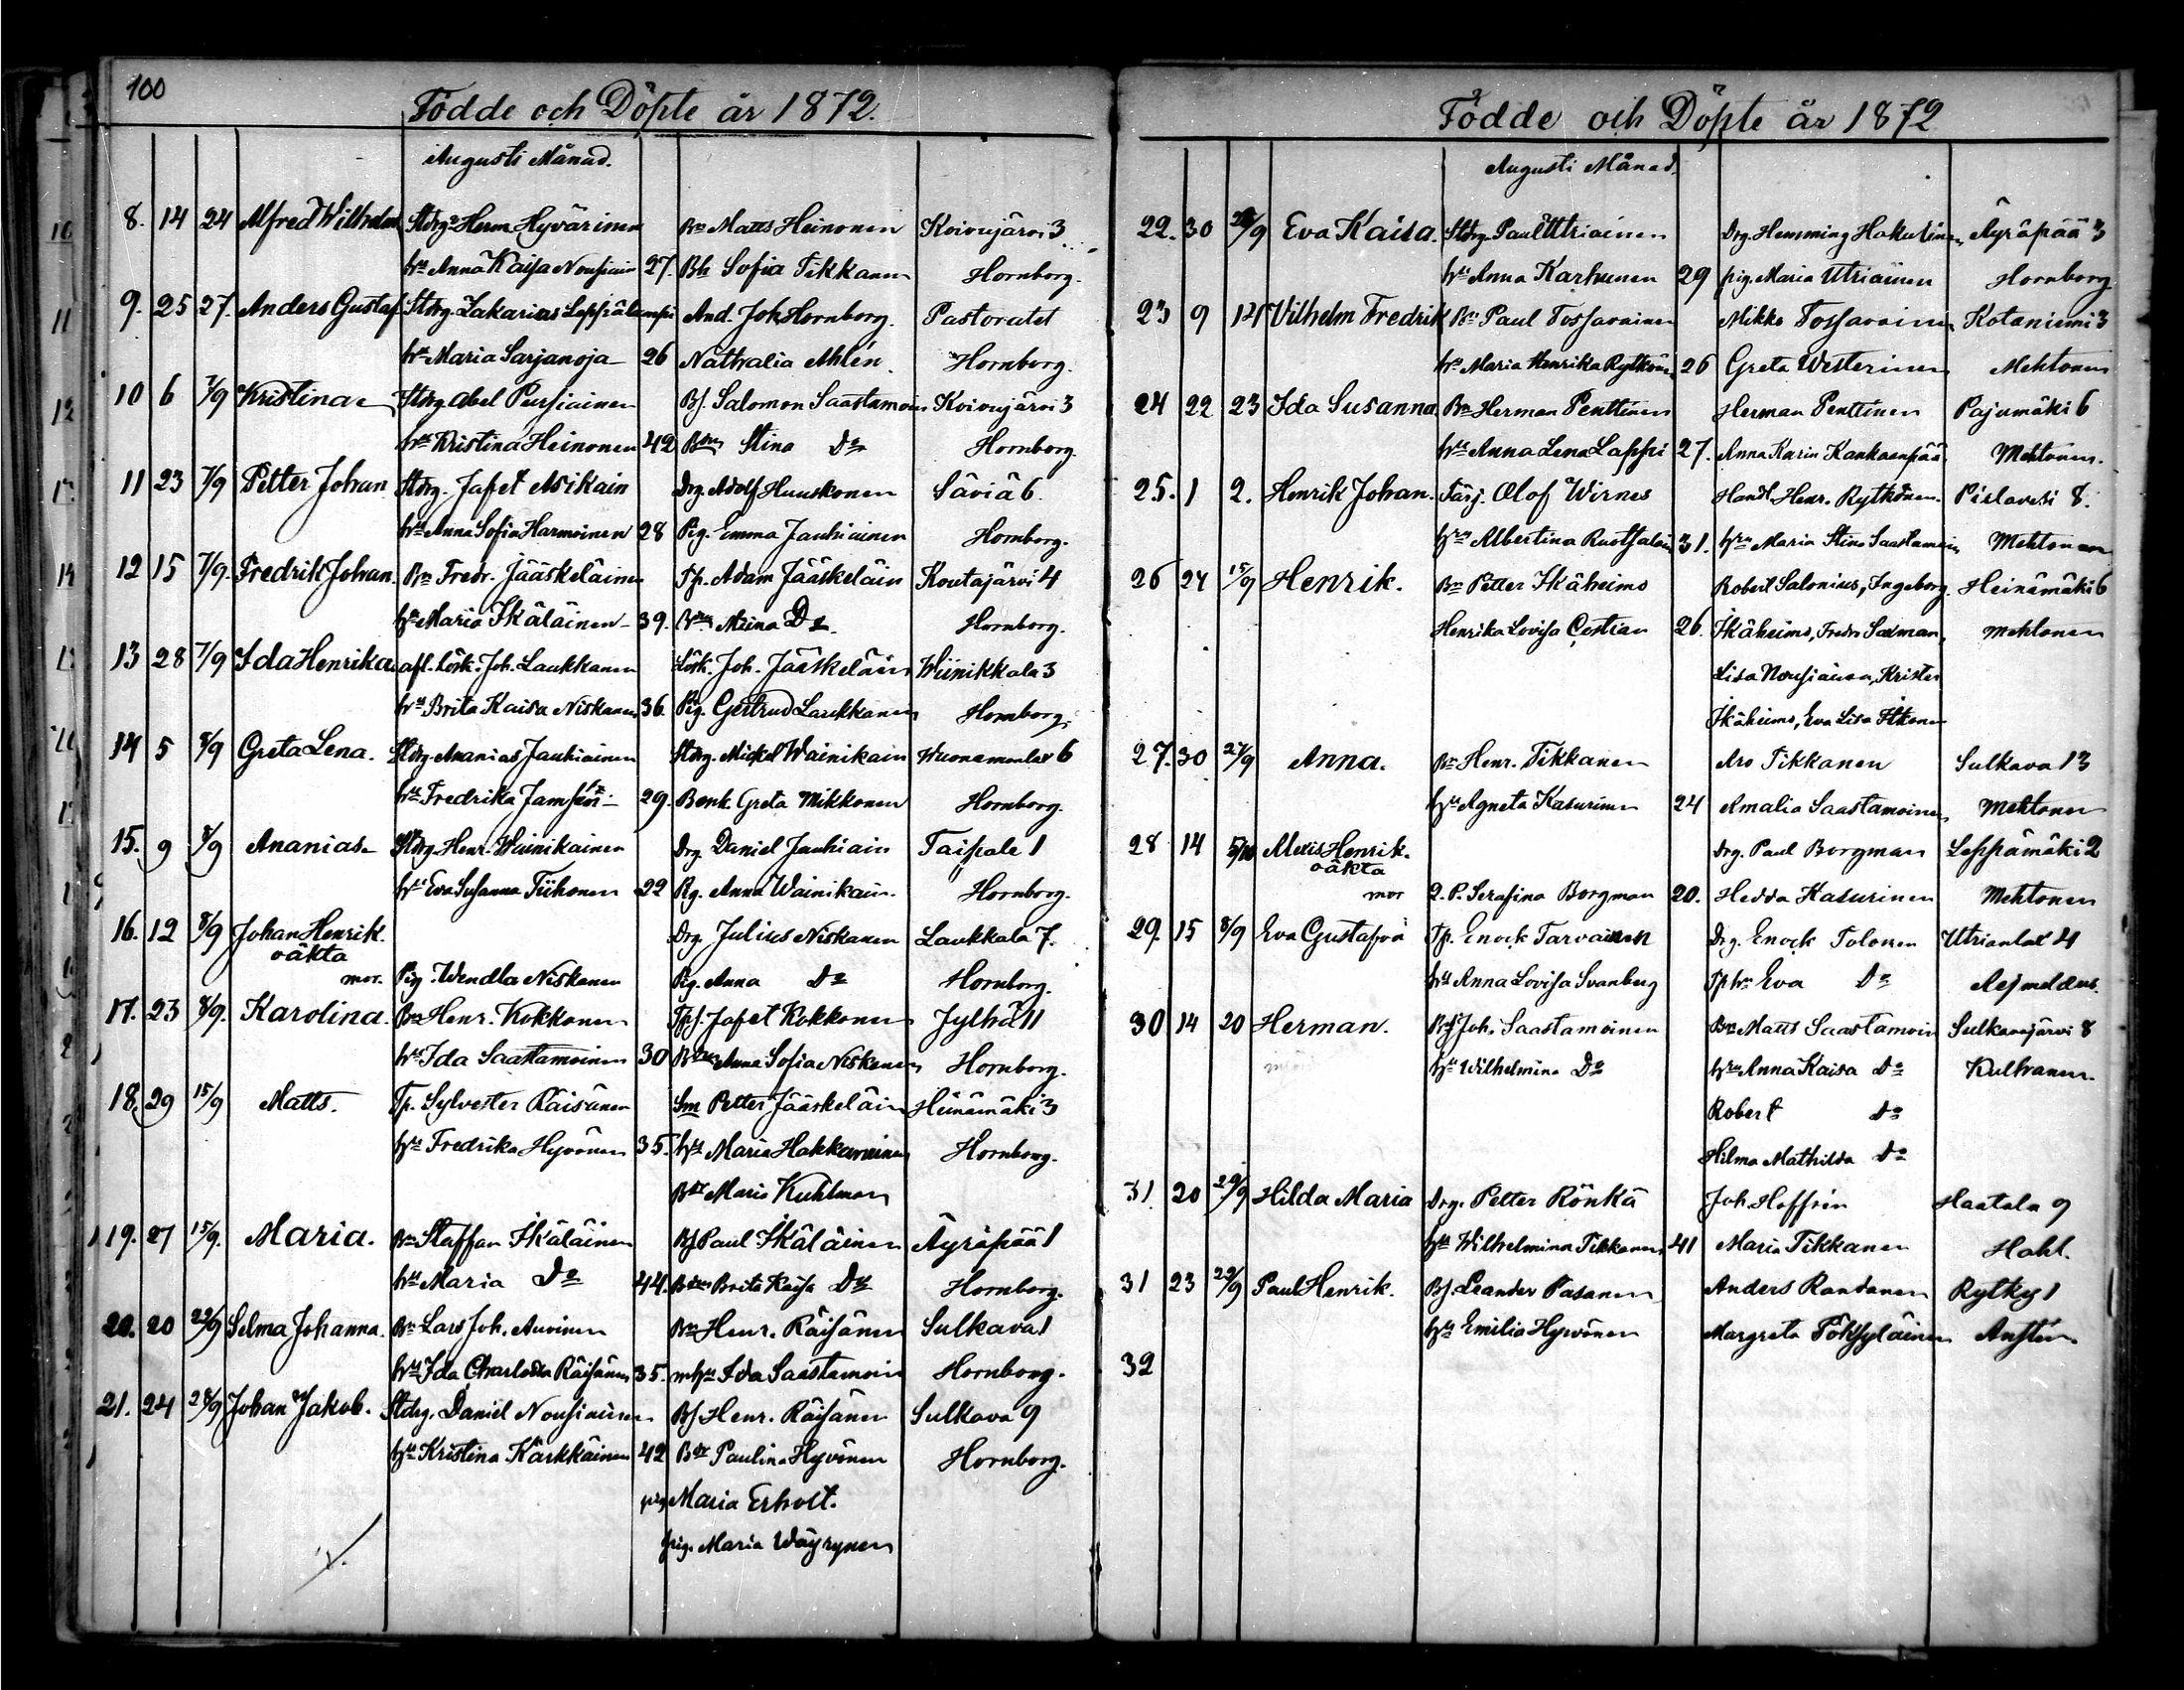 100
Födde och Döpte år 1872.
Augusti Månad.
8. 14 24 Alfred Wilhelm Stdrg. Herm. Hyvärinen Bn Matts Heinonen Koivujärvi 3
hu Anna Kaisa Nousiain 27. Bh Sofia Tikkanen Hornborg.
9. 25 27. Anders Gustaf Stdrg. Zakarias Leppälampi And. Joh. Hornborg. Pastoratet
hu Maria Sarjanoja 26 Nathalia Ahlén Hornborg.
10 6 7/9 Kristina Stdrg Abel Pursiainen Bs. Salomon Saastamoin Koivujärvi 3
hu Kristina Heinonen 42 Bdr Stina Do Hornborg.
11 23 7/9 Petter Johan Stdrg. Jafet Asikain Drg Adolf Huuskonen Säviä 6.
hu Anna Sofia Harmoinen 28 Pig. Emma Jauhiainen Hornborg.
12 15 7/9. Fredrik Johan. Bn Fredr. Jääskeläinen Tp. Adam Jääskeläin Koutajärvi 4
hu Maria Ikäläinen 39. Miina Do. Hornborg.
13 28 7/9 Ida Henrika afl. Lösk. Joh. Laukkanen Lösk. Joh. Jääskeläin Wiinikkala 3
hu Brita Kaisa Niskanen 36. Pig. Gertrud Laukkanen Hornborg.
14 5 8/9 Greta Lena. Stdrg. Ananias Jauhiainen Stdrg. Mickel Wainikain Wuonamonlax 6
hu Fredrika Jamsén 29. Benk Greta Mikkonen Hornborg.
15. 9 8/9 Ananias Stdrg. Henr. Wainikainen Drg Daniel Jauhiain Taipale 1
hu Eva Susanna Tiihonen 22 Pg. Anna Wainikain. Hornborg.
16. 12 8/9 Johan Henrik. Drg. Julius Niskanen Laukkala 7.
oäkta
mor. Pig. Wendla Niskanen Pig. Anna Do Hornborg.
17. 23 8/9. Karolina. Bn Henr. Kokkonen Tps. Jafet Kokkonen Jylhä 11
hu Ida Saastamoinen 30 Anna Sofia Niskanen Hornborg.
18. 29 15/9 Matts. Tp. Sylvester Räisänen Sm Petter Jääskeläin Heinämäki 3
hu Fredrika Hyvönen 35. hu Maria Hakkarainen Hornborg.
Bdr Maria Kuhlman
19. 27 15/9. Maria. Bn Staffan Ikäläinen Bs Paul Ikäläinen Äyräpää 1
hu Maria Do 44. Brita Kaisa Do Hornborg.
20. 20 22/9 Selma Johanna. Bn Lars Joh. Auvinen Bn Henr. Räisänen Sulkava 1
hu Ida Charlotta Räisänen 35. Ida Saastamoin Hornborg.
21. 24 28/9 Johan Jakob. Stdrg. Daniel Nousiainen Bs Henr. Räisänen Sulkava 9
hu Kristina Kärkkäinen 42 Bdr Paulina Hyvönen Hornborg.
pig Maria Erholt.
pig. Maria Wäyrynen
Födde och Döpte år 1872
Augusti Månad.
22. 30 28/9 Eva Kaisa. Stdrg. Paul Utriainen Drg. Hemming Hakulinen Äyräpää 3
hu Anna Karhunen 29 pig. Maria Utriainen Hornborg
23 9 14 Vilhelm Fredrik Bn Paul Tossavainen Mikko Tossavainen Kotaniemi 3
hu Maria Henrika Rytkönen 26 Greta Westerinen Mehtonen
24 22 23 Ida Susanna Bn Herman Penttinen Herman Penttinen Pajumäki 6
hu Anna Lena Lappi 27. Anna Karin Kankaanpää Mehtonen.
25. 1 2. Henrik Johan. Färj. Olof Wirnes Handl. Henr. Rytkönen. Pielavesi 8.
hu Albertina Ruotsalain 31. hru Maria Stina Saastamoin Mehtonen
26 24 15/9 Henrik. Bn Petter Ikäheimo Robert Salonius, Ingeborg Heinämäki 6
Henrika Lovisa Cestran 26. Ikäheimo, Fredr Saxman, Mehtonen
Lisa Nousiainen, Krister
Ikäheimo, Eva Lisa Itkonen
27. 30 27/9 Anna. Bn Henr. Tikkanen Aro Tikkanen Sulkava 13
hu Agneta Kasurinen 24 Amalia Saastamoinen Mehtonen
28 14 5/10 Alexis Henrik. Drg. Paul Borgman Leppämäki 2
oäkta
mor Q. P. Serafina Borgman 20. Hedda Kasurinen Mehtonen
29. 15 8/9 Eva Gustafva Tp. Enock Tarvainen Drg. Enock Tolonen Utrianlax 4
hu Anna Lovisa Svanberg Tphu Eva Do Aejmelæus.
30 14 20 Herman. Bs Joh. Saastamoinen Bn Matts Saastamoin Sulkavajärvi 8
hu Wilhelmina Do hru Anna Kaisa Do Kulhanen.
Robert Do
Hilma Mathilda Do
31. 20 29/9 Hilda Maria Drg. Petter Rönkä Joh. Hoffrén Haatala 9
hu Wilhelmina Tikkanen 41 Maria Tikkanen Hahl.
31 23 22/9 Paul Henrik. Bs. Leander Pasanen Anders Rantanen Rytky 1
hu Emilia Hyvönen Margreta Töksyläinen Anstén
32